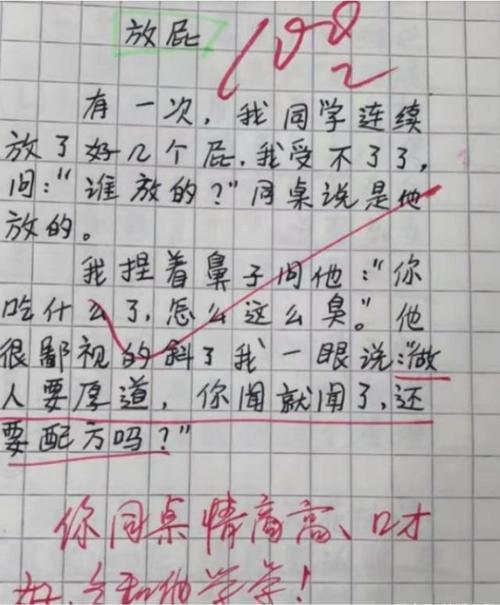 放屁
100
有一次，我同学连续
放了好几个屁，我受不了了，
问："谁放的？"同桌说是他
放的。
我捏着鼻子问他："你
吃什么了，怎么这么臭。"他
很鄙视的斜了我一眼说："做
人要厚道，你闻就闻了，还
要配方吗？"
你同桌情商高、口才
好，多和他学学！